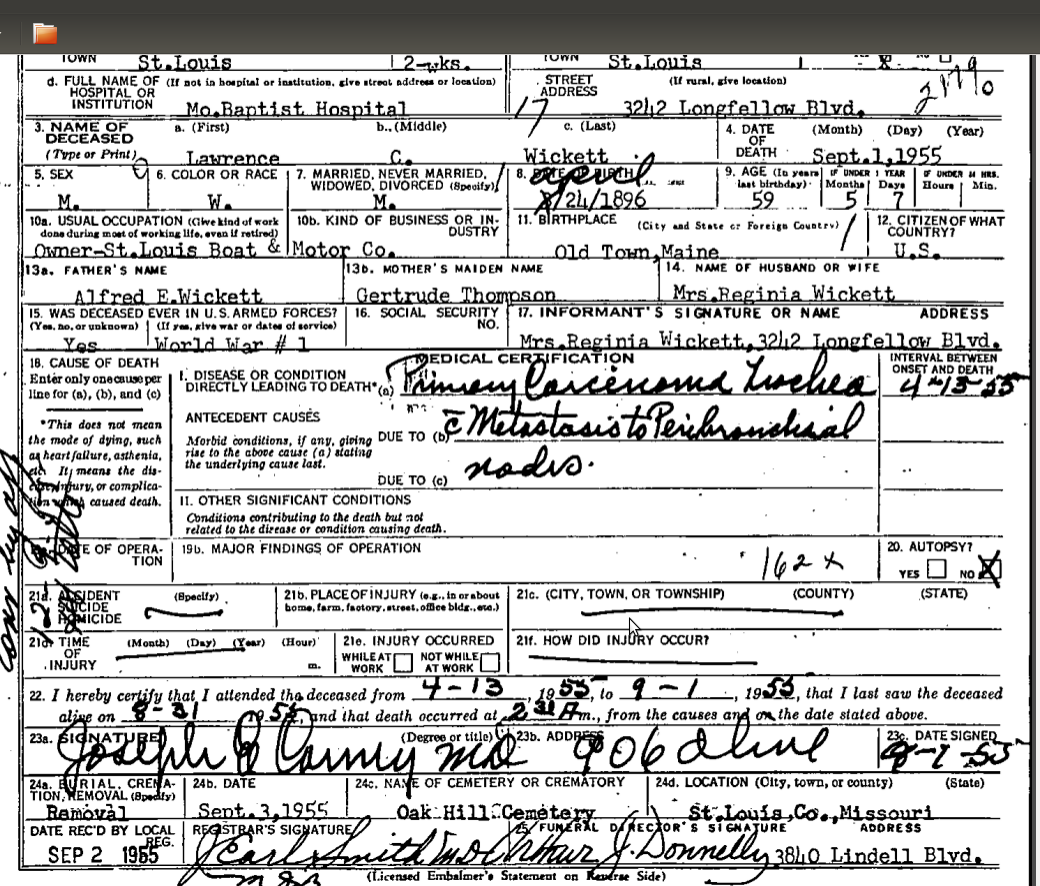 TOWN St.Louis 2-wks. TOWN St.Louis
d. FULL NAME OF (If not in hospital or institution, give street address or location) STREET (If rural, give location)
HOSPITAL OR ADDRESS
INSTITUTION Mo.Baptist Hospital 17 3242 Longfellow Blvd.
3. NAME OF a. (First) b. (Middle) c. (Last) 4. DATE (Month) (Day) (Year)
DECEASED OF
(Type or Print) Lawrence C. Wickett DEATH Sept.1,1955
5. SEX 6. COLOR OR RACE 7. MARRIED, NEVER MARRIED, 8. DATE OF BIRTH 9. AGE (In years IF UNDER 1 YEAR IF UNDER 24 HRS.
WIDOWED, DIVORCED (Specify) April last birthday) Months Days Hours Min.
M. W. M. 8/24/1896 59 5 7
10a. USUAL OCCUPATION (Give kind of work 10b. KIND OF BUSINESS OR IN- 11. BIRTHPLACE (City and State or Foreign Country) 12. CITIZEN OF WHAT
done during most of working life, even if retired) DUSTRY COUNTRY?
Owner-St.Louis Boat & Motor Co. Old Town,Maine U.S.
13a. FATHER'S NAME 13b. MOTHER'S MAIDEN NAME 14. NAME OF HUSBAND OR WIFE
Alfred E.Wickett Gertrude Thompson Mrs.Reginia Wickett
15. WAS DECEASED EVER IN U.S. ARMED FORCES? 16. SOCIAL SECURITY 17. INFORMANT'S SIGNATURE OR NAME ADDRESS
(Yes, no, or unknown) (If yes, give war or dates of service) NO.
Yes World War # 1 Mrs.Reginia Wickett, 3242 Longfellow Blvd.
18. CAUSE OF DEATH MEDICAL CERTIFICATION INTERVAL BETWEEN
Enter only one cause per I. DISEASE OR CONDITION ONSET AND DEATH
line for (a), (b), and (c) DIRECTLY LEADING TO DEATH* (a) Primary Carcinoma Trachea 4-13-55
*This does not mean ANTECEDENT CAUSES
the mode of dying, such Morbid conditions, if any, giving DUE TO (b) c̄ Metastasis to Peribronchial
as heart failure, asthenia, rise to the above cause (a) stating
etc. It means the dis- the underlying cause last.
ease, injury, or complica- DUE TO (c) nodes.
tion which caused death. II. OTHER SIGNIFICANT CONDITIONS
Conditions contributing to the death but not
related to the disease or condition causing death.
DATE OF OPERA- 19b. MAJOR FINDINGS OF OPERATION 20. AUTOPSY?
TION 162 X YES NO X
21a. ACCIDENT (Specify) 21b. PLACE OF INJURY (e.g., in or about 21c. (CITY, TOWN, OR TOWNSHIP) (COUNTY) (STATE)
SUICIDE home, farm, factory, street, office bldg., etc.)
HOMICIDE
21d. TIME (Month) (Day) (Year) (Hour) 21e. INJURY OCCURRED 21f. HOW DID INJURY OCCUR?
OF WHILE AT NOT WHILE
INJURY m. WORK AT WORK
22. I hereby certify that I attended the deceased from 4-13, 1955, to 9-1, 1955, that I last saw the deceased
alive on 8-31 1955, and that death occurred at m., from the causes and on the date stated above.
23a. SIGNATURE (Degree or title) 23b. ADDRESS 23c. DATE SIGNED
Joseph MD 906 Olive
24a. BURIAL, CREMA- 24b. DATE 24c. NAME OF CEMETERY OR CREMATORY 24d. LOCATION (City, town, or county) (State)
TION, REMOVAL (Specify)
Removal Sept.3,1955 Oak Hill Cemetery St.Louis,Co.,Missouri
DATE REC'D BY LOCAL REGISTRAR'S SIGNATURE 25. FUNERAL DIRECTOR'S SIGNATURE ADDRESS
REG.
SEP 2 1955 J. Earl Smith MD Arthur J. Donnelly 3840 Lindell Blvd.
(Licensed Embalmer's Statement on Reverse Side)